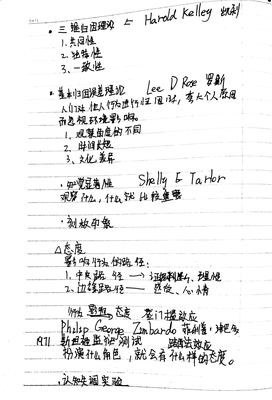 · 三维归因理论 ← Harold Kelley 凯利
1. 共同性
2. 独特性
3. 一致性
· 基本归因误差理论 Lee D Rose 罗斯
人们对他人行为进行归因时,夸大个人原因
而忽视环境影响。
1. 观察角度的不同
2. 时间太短
3. 文化差异
· 知觉显著性 Shelly E Tarlor
观察什么,什么就比较重要
· 刻板印象
△ 态度
影响行为的路径:
1. 中央路径 → 理性
2. 边缘路径 → 感受、心情
行为影响态度 登门槛效应
Philip George Zimbardo 菲利普·津巴多
1971 斯坦福监狱测试
扮演什么角色,就会有什么样的态度。
· 认知失调实验